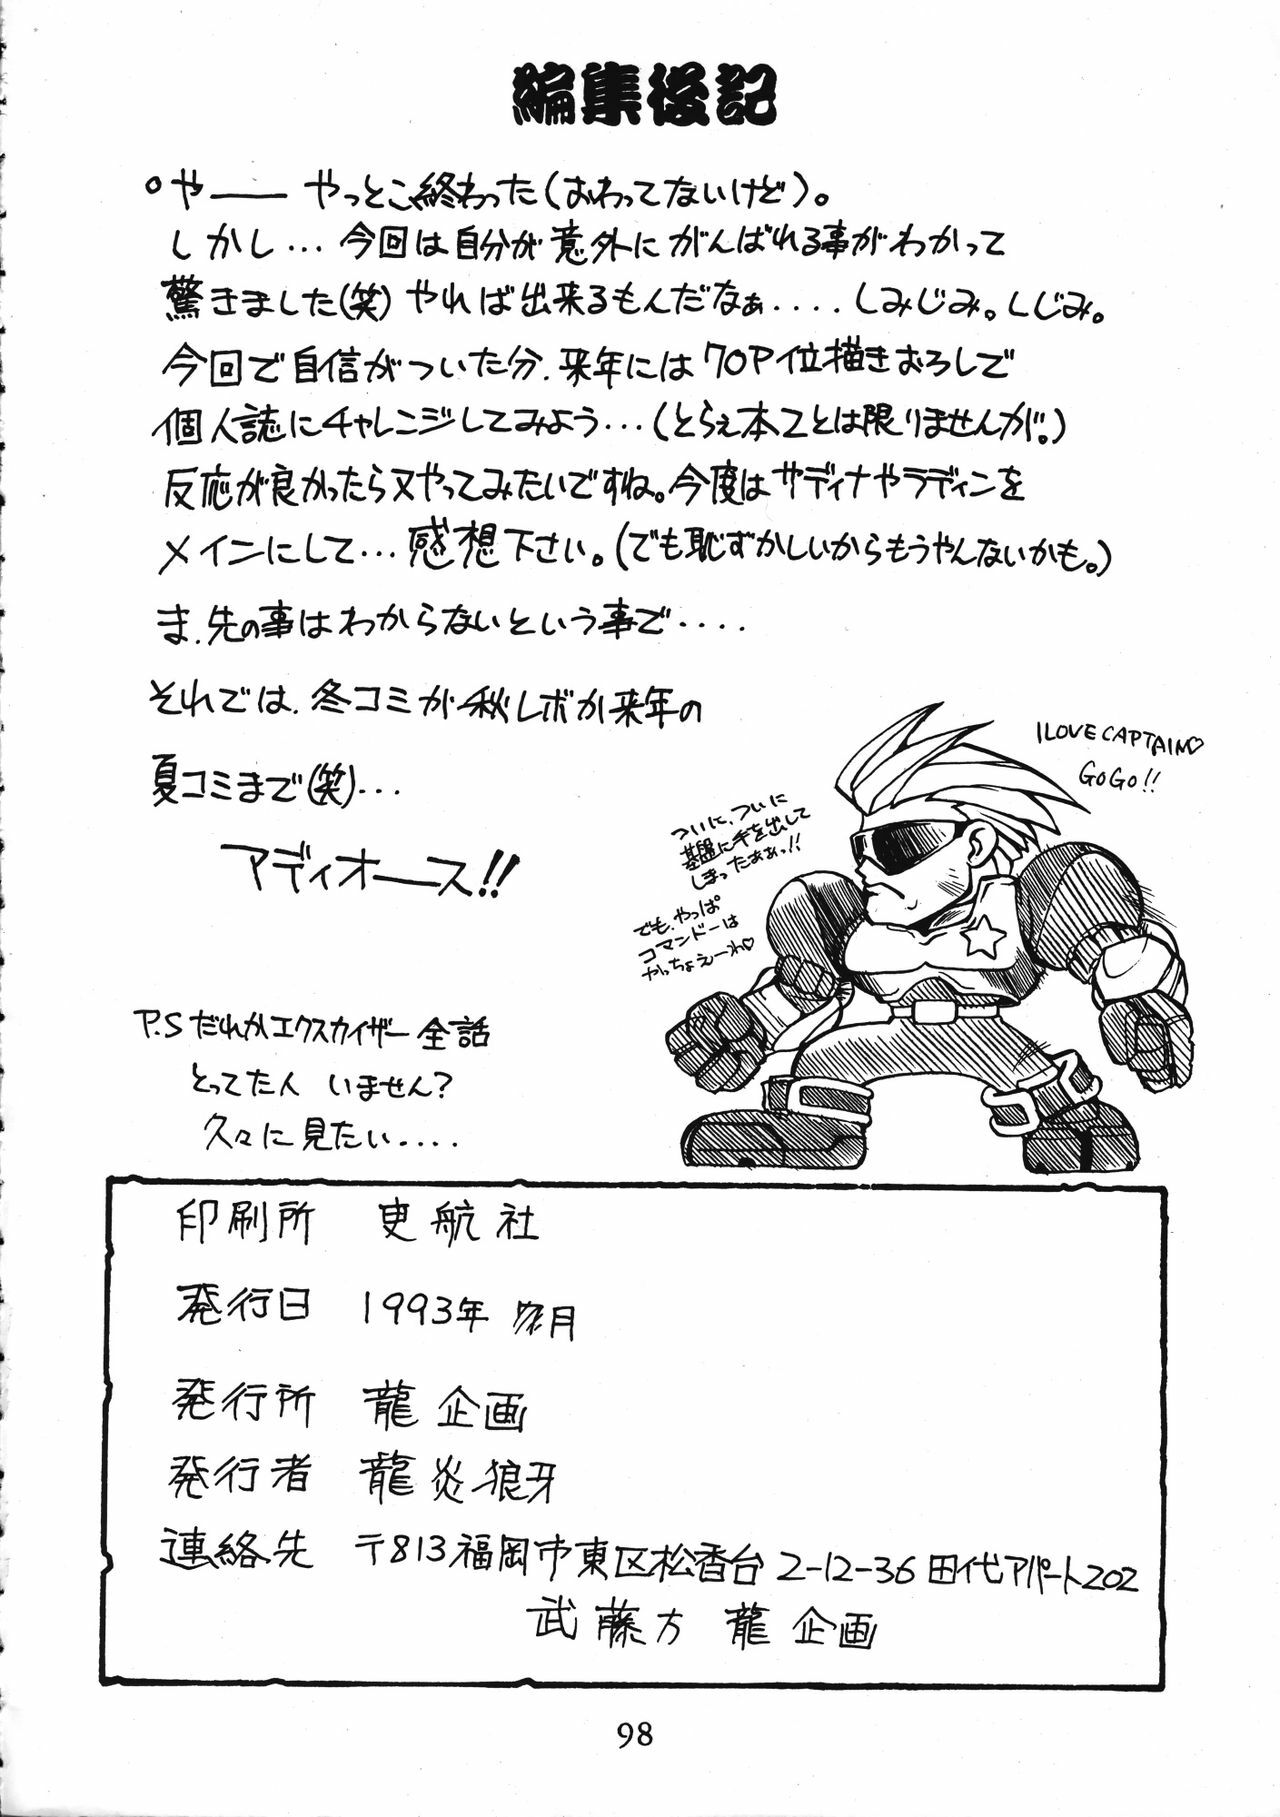 編集後記
。やーー やっとこ終わった(おわってないけど)。
しかし…今回は自分が意外にがんばれる事がわかって
驚きました(笑)やれば出来るもんだなぁ....しみじみ。しじみ。
今回で自信がついた分、来年には70P位描きおろしで
個人誌にチャレンジしてみよう…(とらぇ本ことは限りませんが。)
反応が良かったら又やってみたいですね。今度はサディナやラディンを
メインにして…感想下さい。(でも恥ずかしいからもうやんないかも。)
ま、先の事はわからないという事で....
それでは、冬コミか秋レボか来年の
夏コミまで(笑)…
アディオース!!
I LOVE CAPTAIN♡
GOGO!!
ついに、ついに
基盤に手を出して
しまったぁぁっ!!
でも、やっぱ
コマンドーは
かっちょえーわ♡
P.Sだれかエクスカイザー全話
とってた人 いません?
久々に見たい....
印刷所 吏航社
発行日 1993年 月
発行所 龍企画
発行者 龍炎狼牙
連絡先 〒813福岡市東区松香台2-12-36田代アパート202
武藤方 龍企画
98